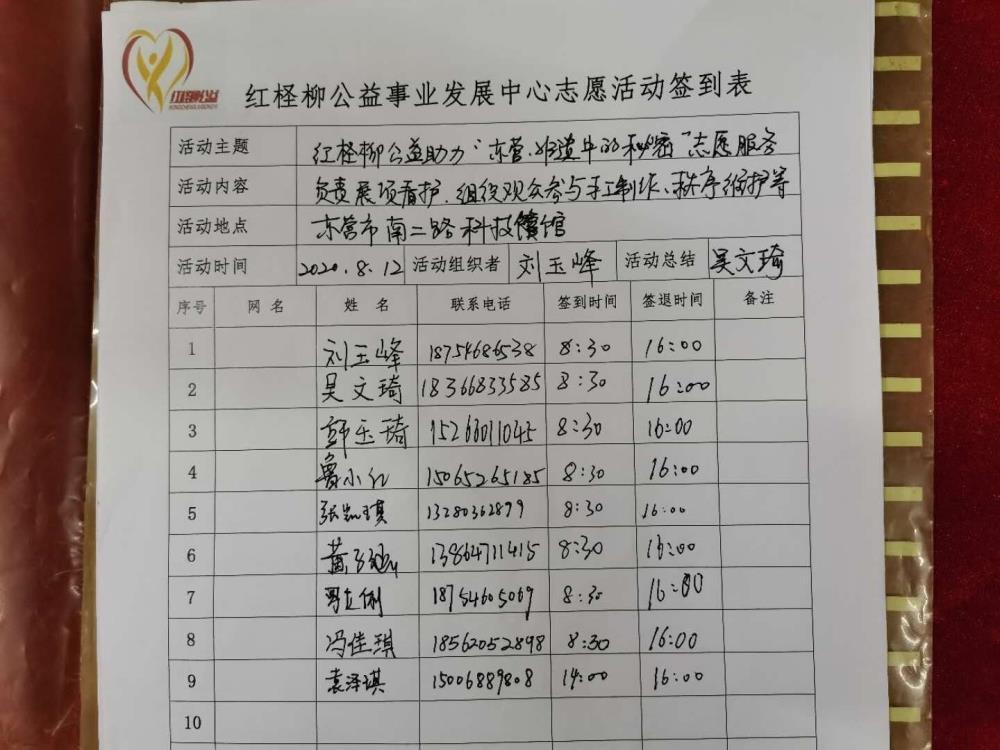 红柽柳公益
红柽柳公益事业发展中心志愿活动签到表
活动主题 红柽柳公益助力“东营·非遗中的秘密”志愿服务
活动内容 负责展项看护、组织观众参与手工制作、秩序维护等
活动地点 东营市南二路科技馆
活动时间 2020.8.12 活动组织者 刘玉峰 活动总结 吴文琦
序号 网名 姓名 联系电话 签到时间 签退时间 备注
1 刘玉峰 18754686538 8:30 16:00
2 吴文琦 18366833585 8:30 16:00
3 郭玉琦 15266011045 8:30 16:00
4 鲁小红 15065265185 8:30 16:00
5 张凯琪 13280362899 8:30 16:00
6 黄 13864711415 8:30 16:00
7 18754605069 8:30 16:00
8 冯佳琪 18562052898 8:30 16:00
9 袁泽琪 15006889808 14:00 16:00
10